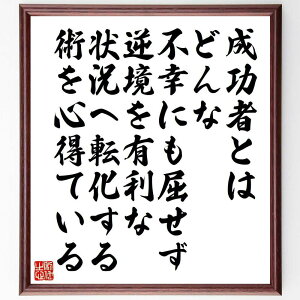 成功者とは
どんな
不幸にも屈せず
逆境を有利な
状況へ転化する
術を心得ている